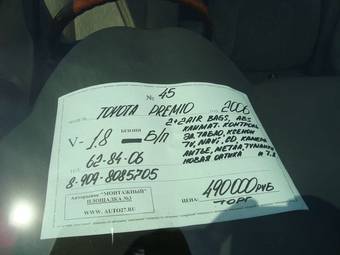 № 45
TOYOTA PREMIO 2006
2+2 AIR BAGS, ABS
КЛИМАТ. КОНТРОЛЬ
V- 1.8 БЕНЗИН Б/П
ЭЛ. ТАБЛО, КСЕНОН
TV, NAVI, CD, КАМЕРА
ЛИТЬЕ, МЕТАЛ, ТУМАНКИ
НОВАЯ ОПТИКА И Т.Д
62-84-06
8-909-8085705
490 000 РУБ
ЦЕНА: ТОРГ
Авторынок "МОНТАЖНЫЙ"
ПЛОЩАДКА №3
WWW.AUTO27.RU